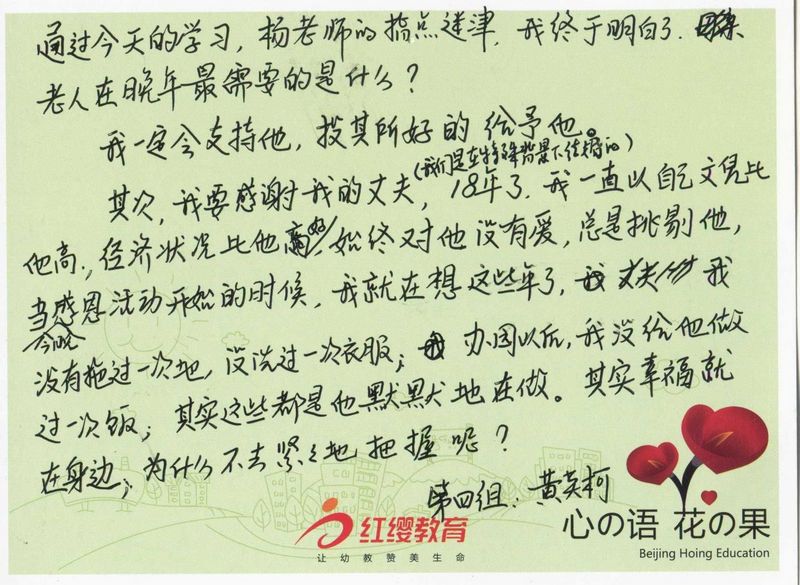 通过今天的学习，杨老师的指点迷津，我终于明白了．
老人在晚年最需要的是什么？
我一定会支持他，投其所好的给予他。
(我们是在特殊背景下结婚的)
其次，我要感谢我的丈夫，18年了，我一直以自己文凭比
他高，经济状况比他好，始终对他没有爱，总是挑剔他，
当感恩活动开始的时候，我就在想这些年了，我
今晚
没有拖过一次地，没洗过一次衣服；办园以后，我没给他做
过一次饭；其实这些都是他默默地在做。其实幸福就
在身边，为什么不去紧々地把握呢？
第四组．黄英柯
红缨教育
让幼教赞美生命
心の语 花の果
Beijing Hoing Education